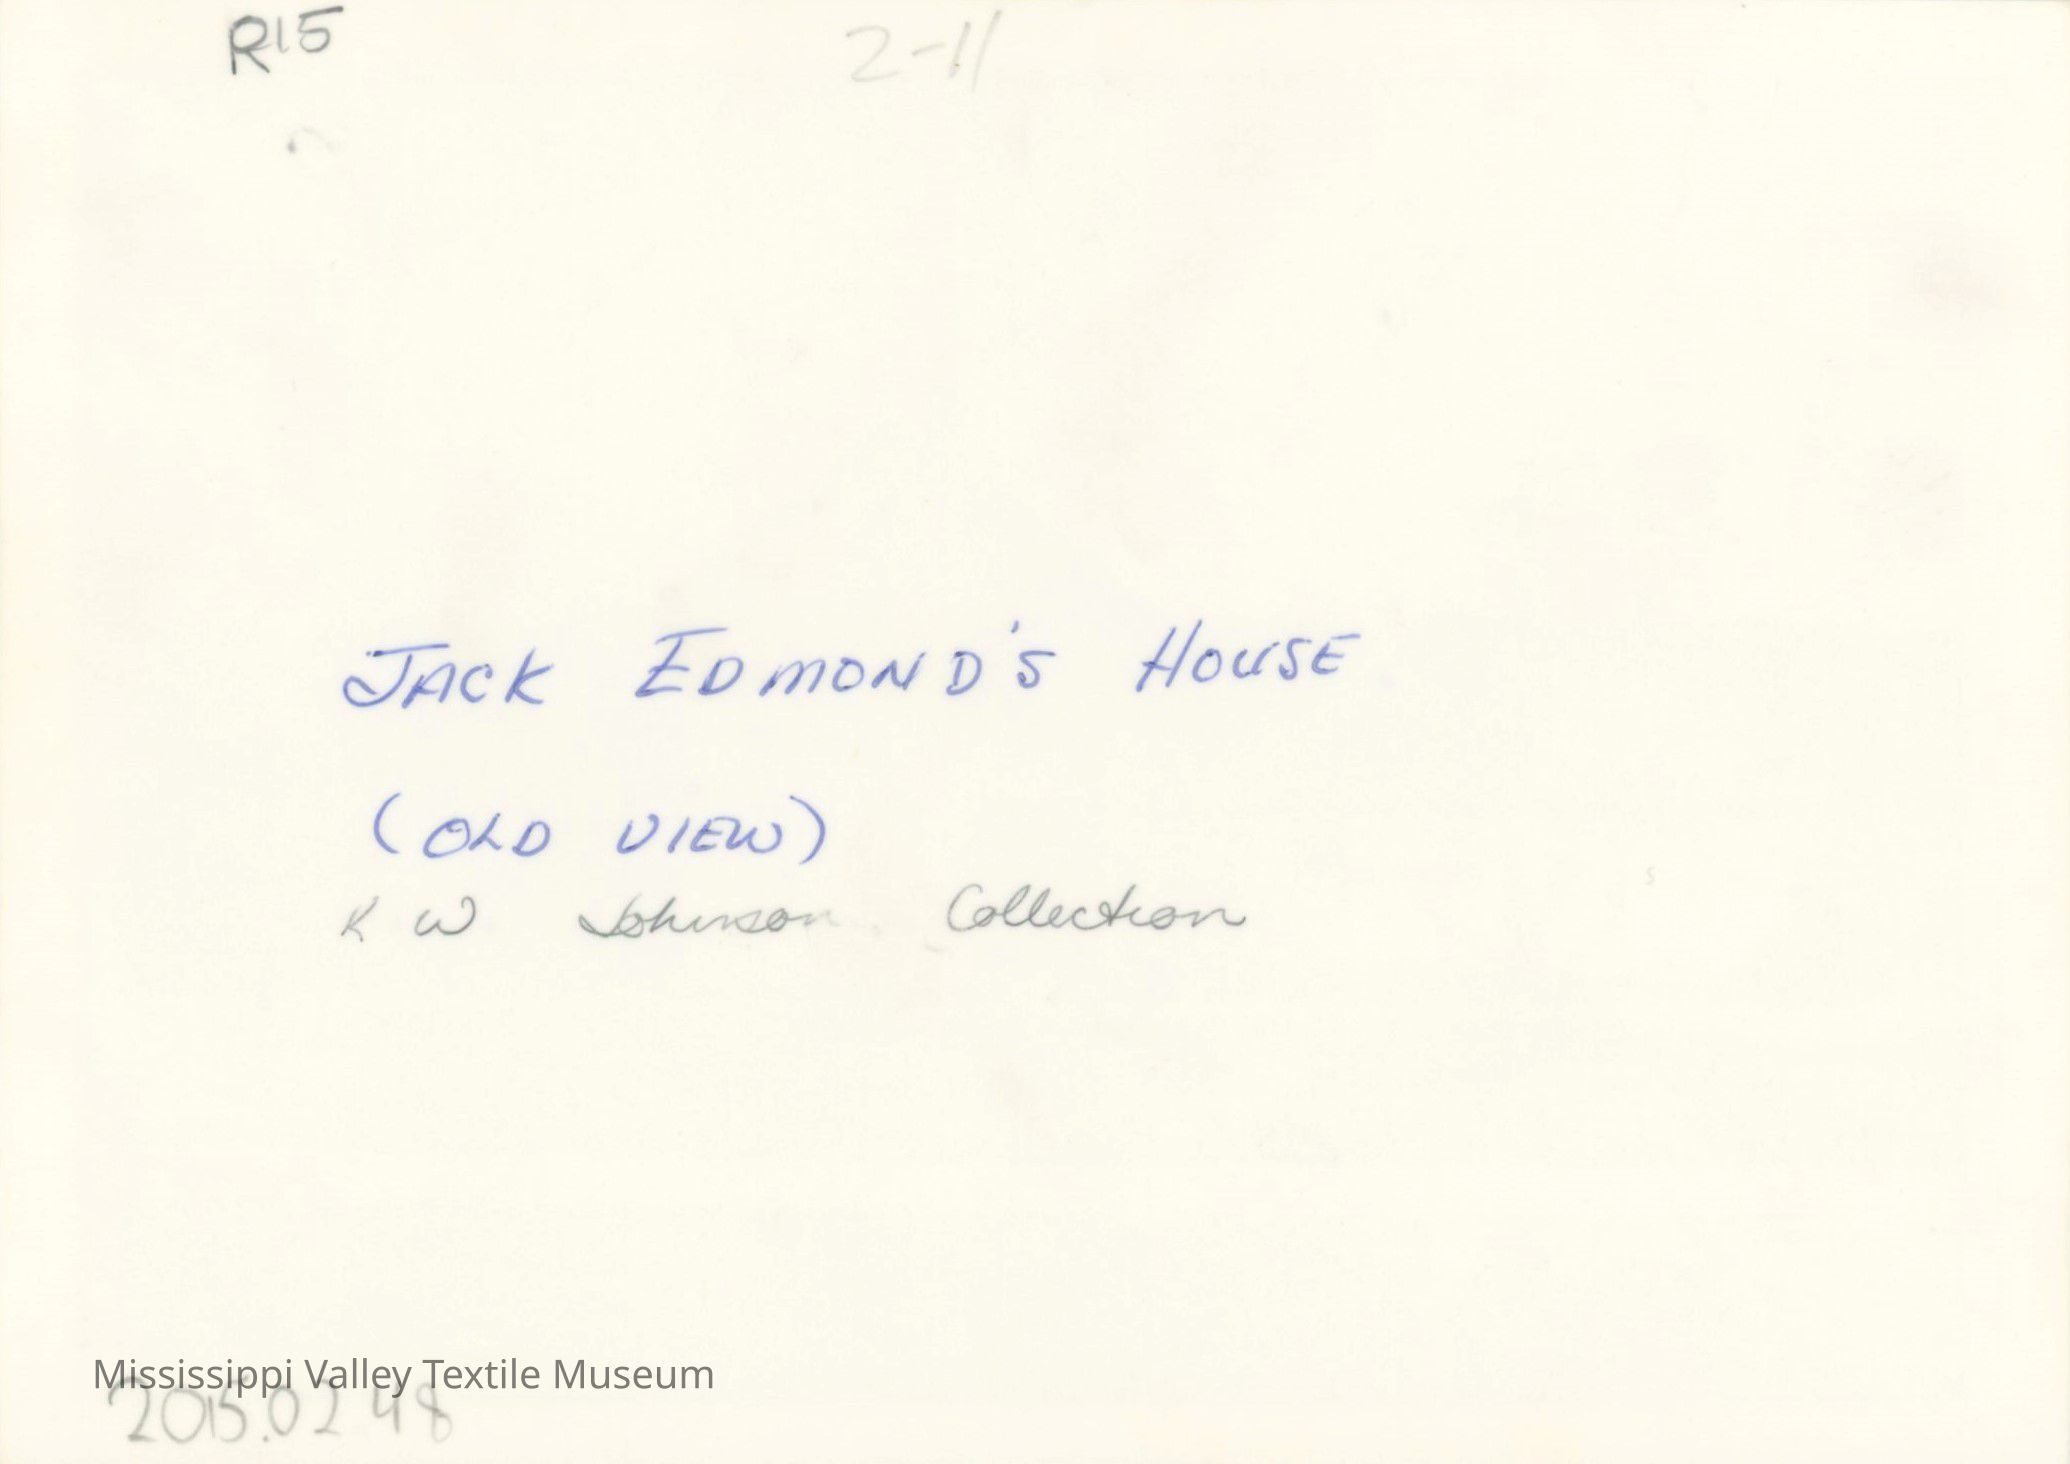 R15
2-11
JACK EDMOND'S HOUSE
(OLD VIEW)
K W Johnson Collection
Mississippi Valley Textile Museum
2015.02 48